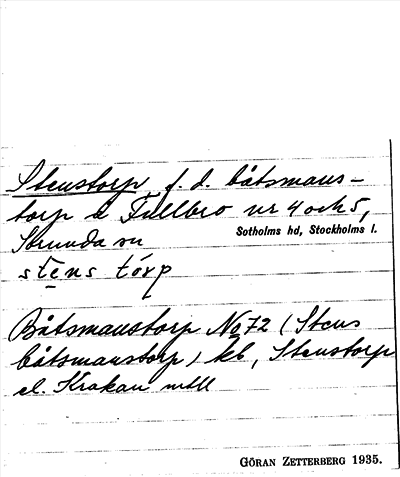 Stenstorp f. d. båtsmans-
torp å Fullbro nr 4 och 5,
Sorunda sn Sotholms hd, Stockholms l.
stens tórp
Båtsmanstorp No 72 (Stens
båtsmanstorp) kb, Stenstorp
el. Krakan mtll
GÖRAN ZETTERBERG 1935.